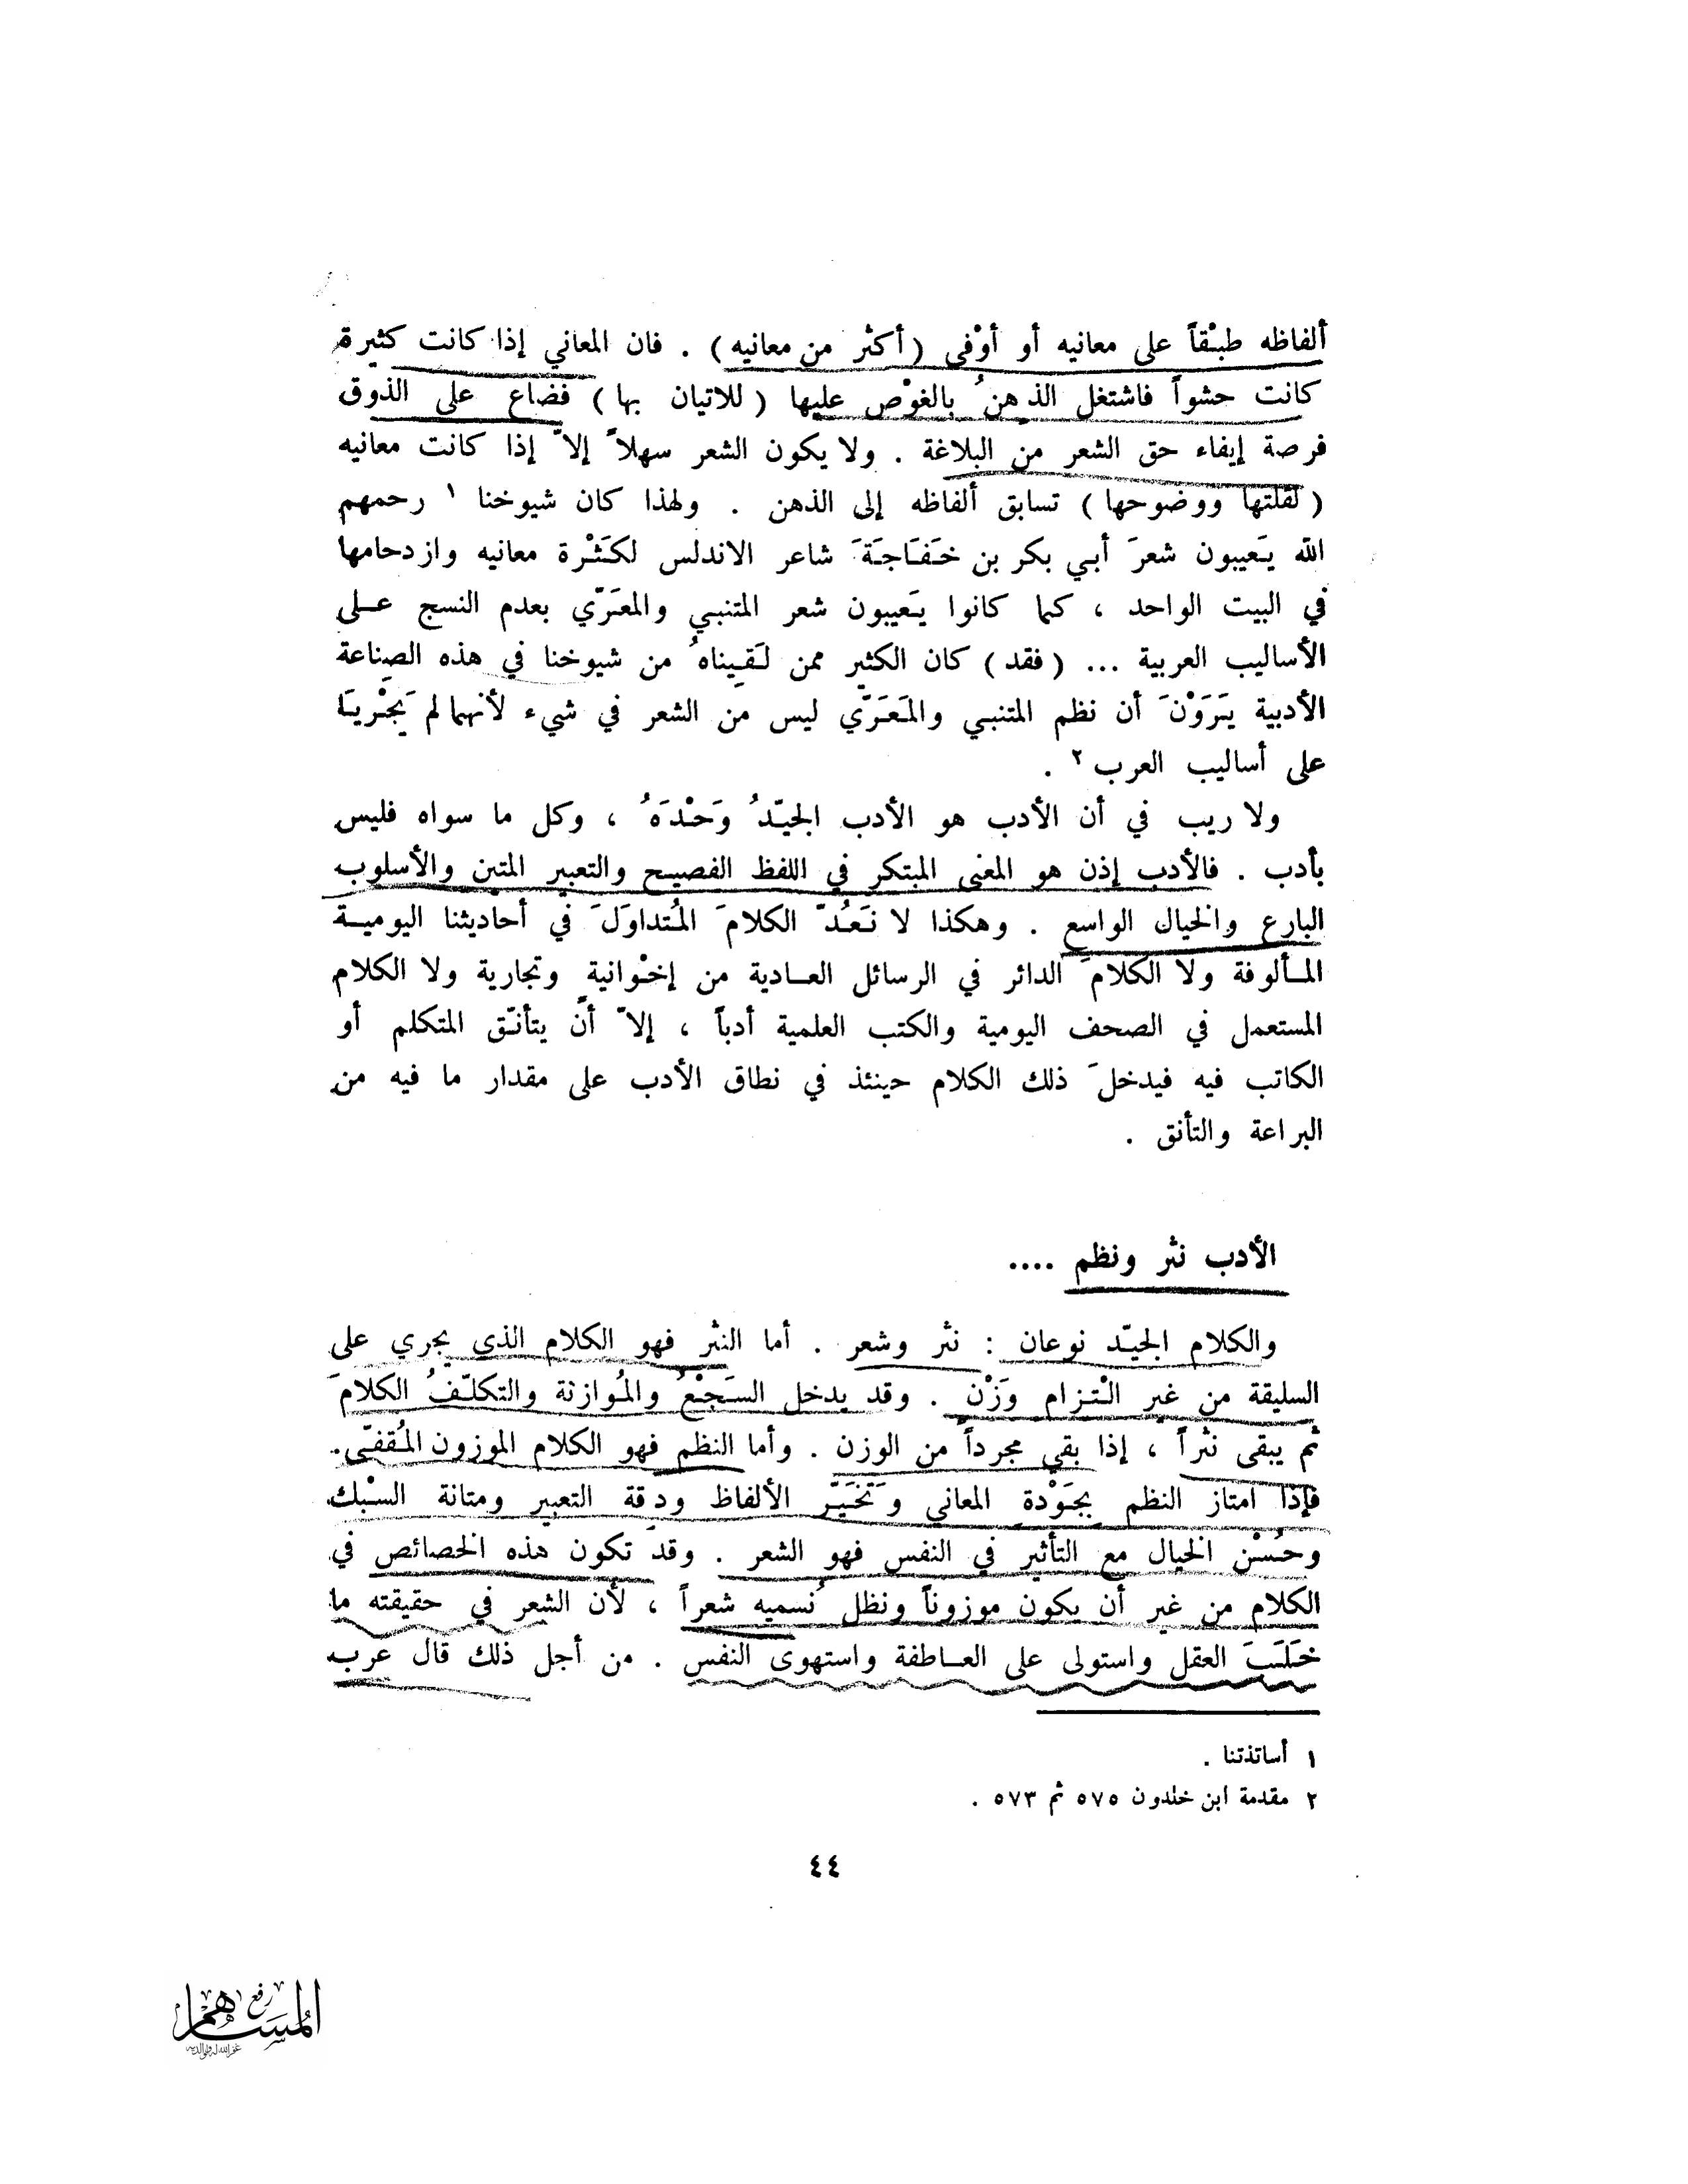 ألفاظه طبْقاً على معانيه أو أوْفى (أكثر من معانيه) . فان المعاني إذا كانت كثيرة
كانت حشواً فاشتغل الذهنُ بالغوْص عليها (للاتيان بها) فضاع على الذوق
فرصة إيفاء حق الشعر من البلاغة . ولا يكون الشعر سهلاً إلاّ إذا كانت معانيه
(لقلتها ووضوحها) تسابق ألفاظه إلى الذهن . ولهذا كان شيوخنا ١ رحمهم
الله يَعيبون شعرَ أبي بكر بن خَفَاجَةَ شاعر الاندلس لكَثْرة معانيه وازدحامها
في البيت الواحد ، كما كانوا يَعيبون شعر المتنبي والمعَرّي بعدم النسج عـلى
الأساليب العربية ... (فقد) كان الكثير ممن لَقِيناهُ من شيوخنا في هذه الصِناعة
الأدبية يَرَوْنَ أن نظم المتنبي والمَعَرّي ليس من الشعر في شيء لأنهما لم يَجْريَا
على أساليب العرب ٢ .
ولا ريب في أن الأدب هو الأدب الجيّدُ وَحْدَهُ ، وكل ما سواه فليس
بأدب . فالأدب إذن هو المعنى المبتكر في اللفظ الفصيح والتعبير المتين والأسلوب
البارع والخيال الواسع . وهكذا لا نَعُدّ الكلامَ المُتداوَلَ في أحاديثنا اليوميـة
المـألوفة ولا الكلامَ الدائر في الرسائل العـادية من إخْوانية وتجارية ولا الكلام
المستعمل في الصحف اليومية والكتب العلمية أدباً ، إلاّ أنْ يتأنّق المتكلم أو
الكاتب فيه فيدخلَ ذلك الكلام حينئذ في نطاق الأدب على مقدار ما فيه من
البراعة والتأنق .
الأدب نثر ونظم ....
والكلام الجيّد نوعان : نثر وشعر . أما النثر فهو الكلام الذي يجري على
السليقة من غير الْتزام وَزْن . وقد يدخل السَجْعُ والمُوازنة والتكلّفُ الكلامَ
ثم يبقى نثراً ، إذا بقي مجرداً من الوزن . وأما النظم فهو الكلام الموزون المُقفّى.
فإذا امتاز النظم بجَوْدة المعاني وتَخَيّر الألفاظ ودِقة التعبير ومتانة السبْك
وحُسْن الخيال مع التأثير في النفس فهو الشعر . وقد تكون هذه الخصائص في
الكلام من غير أن يكون موزوناً ونظل نُسميه شعراً ، لأن الشعر في حقيقته ما
خَلَبَ العقل واستولى على العـاطفة واستهوى النفس . من أجل ذلك قال عرب
١ أساتذتنا .
٢ مقدمة ابن خلدون ٥٧٥ ثم ٥٧٣ .
٤٤
رفع
المساهم
غفر الله له ولوالديه